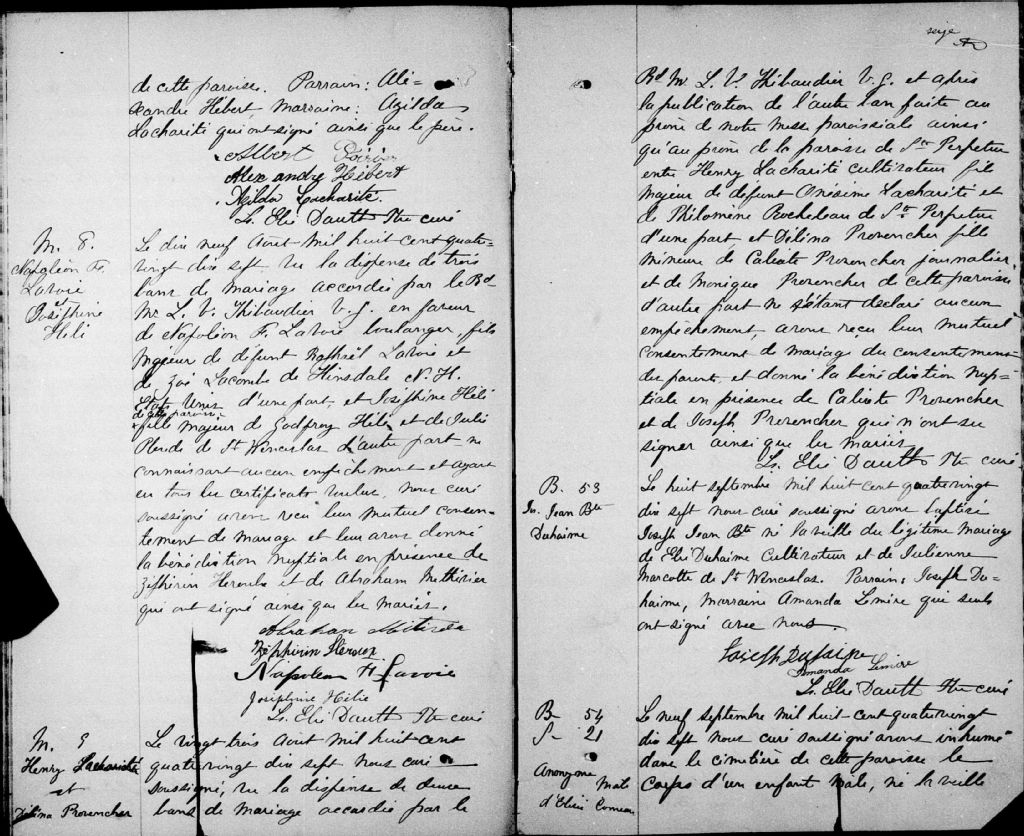 de cette paroisse. Parrain: Ale-
xandre Hébert, Marraine: Azilda
Lacharité qui ont signé ainsi que le père.
Albert Poirier
Alexandre Hébert
Azilda Lacharité
Ls. Elie Dauth Ptre curé
M. 8.
Napoléon F.
Lavoie
et
Joséphine
Héli
Le dix neuf Aout mil huit cent quatre-
vingt dix sept vu la dispense de trois
bans de mariage accordée par le Rd
Mr L. V. Thibaudier V. G. en faveur
de Napoléon F. Lavoie boulanger, fils
majeur de défunt Raphaël Lavoie et
de Zoé Lacombe de Hinsdale N. H.
Etats Unis d'une part, et Joséphine Héli
de cette paroisse
fille majeur de Godfroy Héli et de Julie
de St Wenceslas d'autre part ne
connaissant aucun empêchement et ayant
eu tous les certificats voulus, nous curé
soussigné avons reçu leur mutuel consen-
tement de mariage et leur avons donné
la bénédiction nuptiale en présence de
Zéphirin Heroux et de Abraham Methivier
qui ont signé ainsi que les mariés.
Abraham
Zéphirin Heroux
Napoleon F Lavoie
Josephine Hélie
Ls. Elie Dauth Ptre curé
M. 9
Henry Lacharité
et
Délina Provencher
Le vingt trois Aout mil huit cent
quatrevingt dix sept nous curé
soussigné, vu la dispense de deux
bans de mariage accordée par le
seize
Rd Mr. L. V. Thibaudier V. G. et après
la publication de l'autre ban faite au
prône de notre messe paroissiale ainsi
qu'au prône de la paroisse de Ste Perpetue
entre Henry Lacharité cultivateur fils
majeur de defunt Onésime Lacharité et
de Philomène Rocheleau de Ste Perpetue
d'une part et Délina Provencher fille
mineure de Calixte Provencher journalier
et de Monique Provencher de cette paroisse
d'autre part ne s'étant declaré aucun
empêchement, avons reçu leur mutuel
consentement de mariage du consentement
des parents, et donné la bénédiction nup-
tiale en présence de Calixte Provencher
et de Joseph Provencher qui n'ont su
signer ainsi que les mariés
Ls. Elie Dauth Ptre curé
B. 53
Js. Jean Bte
Duhaime
Le huit septembre mil huit cent quatrevingt
dix sept nous curé soussigné avons baptisé
Joseph Jean Bte né la veille du légitime mariage
de Elie Duhaime cultivateur et de Julienne
Marcotte de St Wenceslas. Parrain: Joseph Du-
haime, Marraine Amanda Lemire qui seuls
ont signé avec nous.
Joseph Duhaime
Amanda Lemire
Ls. Elie Dauth Ptre curé
B- 54
S- 21
Anonyme
Mâle
d'Elie Comeau
Le neuf septembre mil huit-cent quatrevingt
dix sept nous curé soussigné avons inhumé
dans le cimetière de cette paroisse le
corps d'un enfant mâle, né la veille